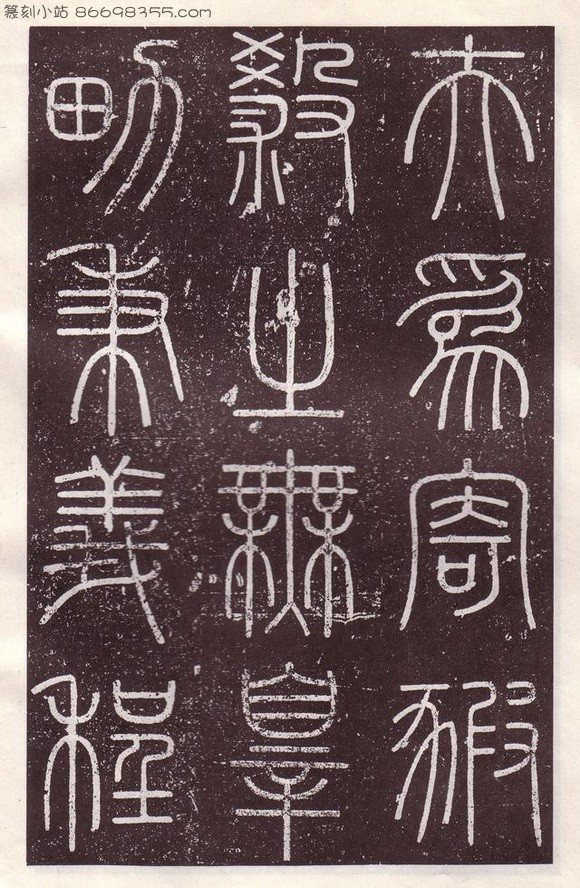 篆刻小站 86698355.com
夫為寄豭
殺之無辠
男秉義程